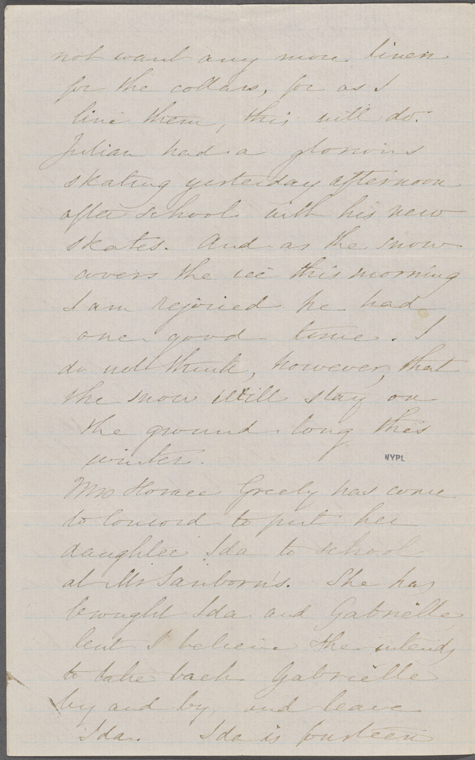 not want any more linen
for the collars, for as I
line them, this will do.
Julian had a glorious
skating yesterday afternoon
after school with his new
skates. And as the snow
covers the ice this morning
I am rejoiced he had
one good time. I
do not think, however, that
the snow will stay on
the ground long this
winter.
NYPL
Mrs Horace Greely has come
to Concord to put her
daughter Ida to school
at Mr Sanborn's. She has
brought Ida and Gabrielle
but I believe she intends
to take back Gabrielle
by and by, and leave
Ida. Ida is fourteen